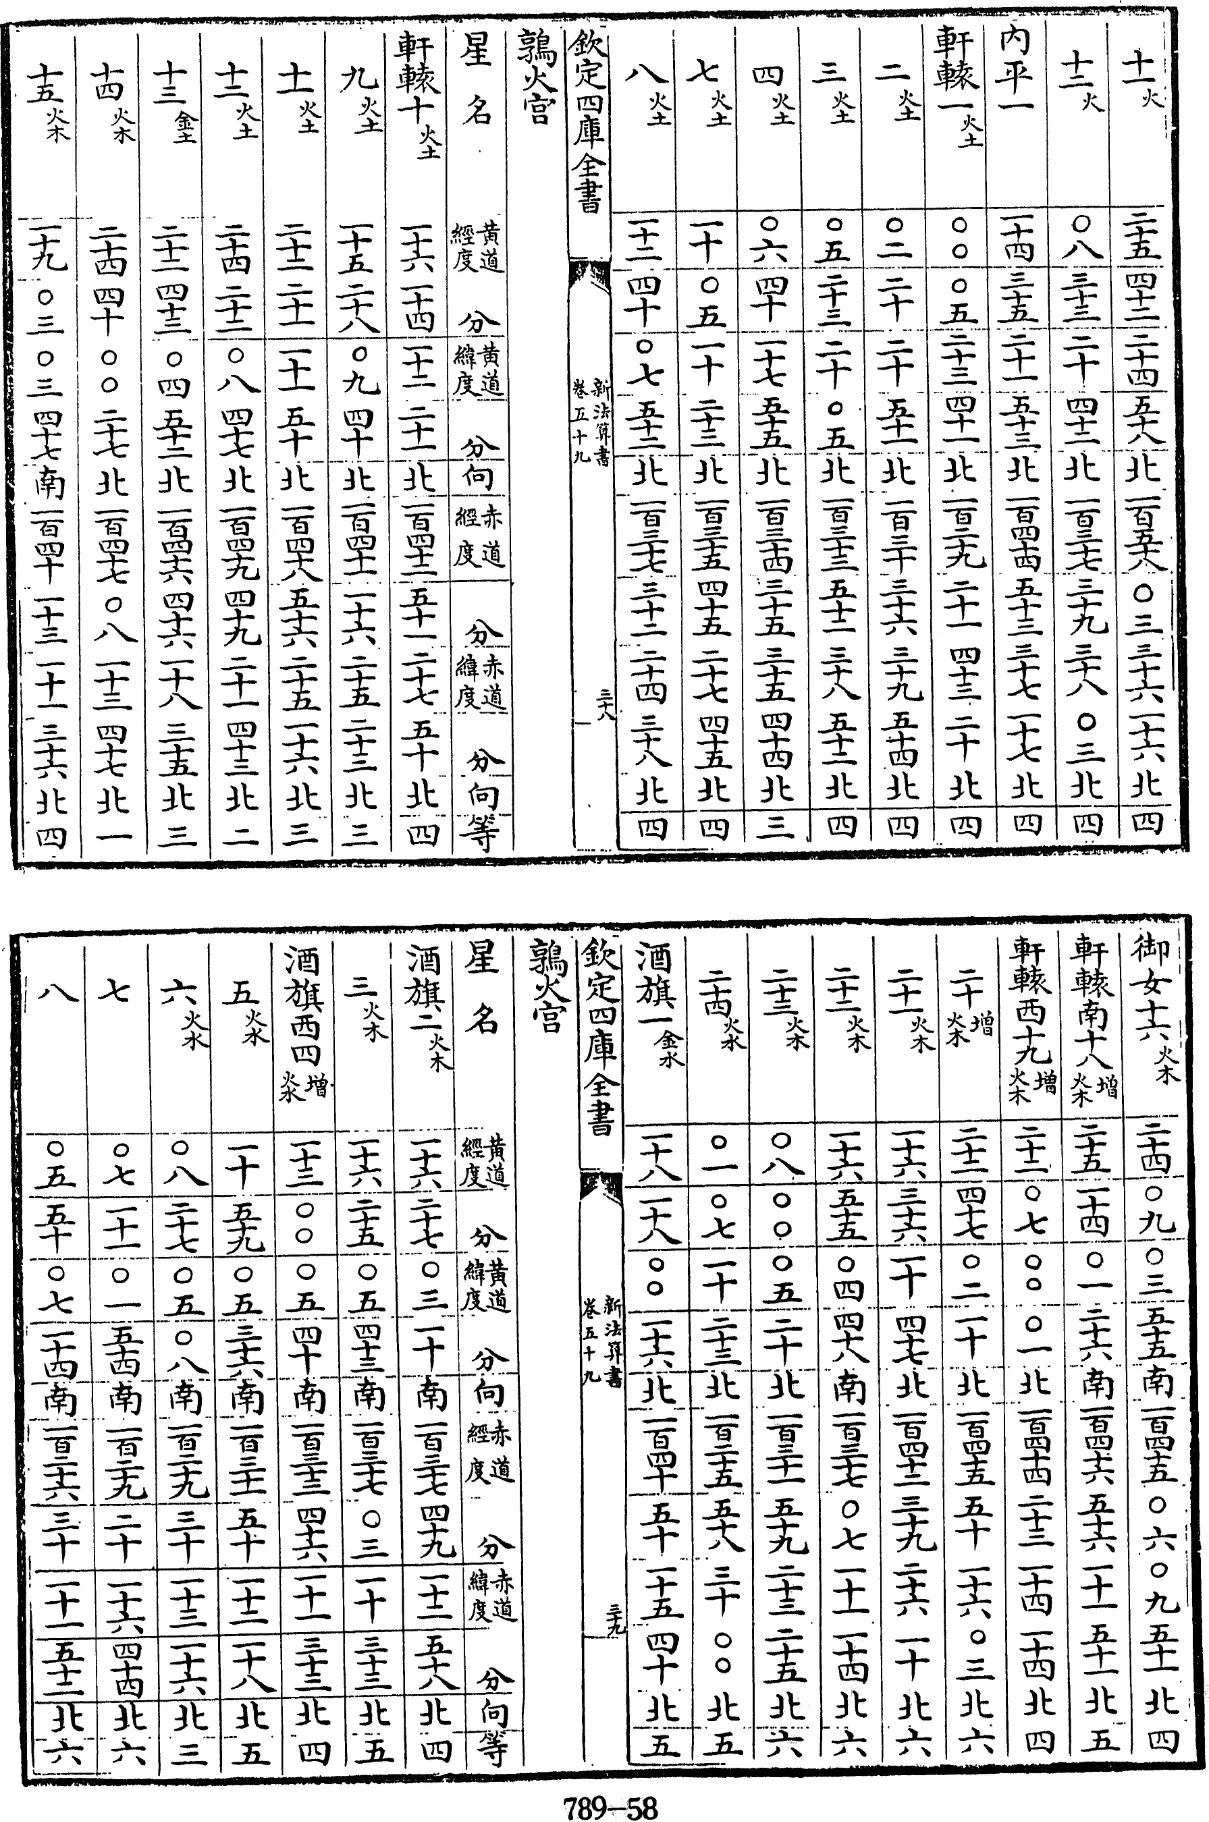 十一火 二十五 四十二 二十四 五十八 北 一百五十八 〇三 三十六 一十六 北 四
十二火 〇八 三十三 二十 四十二 北 一百三十七 三十九 三十八 〇三 北 四
内平一 一十四 三十五 二十一 五十三 北 一百四十四 五十三 三十七 一十七 北 四
軒轅一火土 〇〇 〇五 二十三 四十一 北 一百二十九 二十一 四十三 二十 北 四
二火土 〇二 二十 二十 五十一 北 一百三十 三十六 三十九 五十四 北 四
三火土 〇五 二十三 二十 〇五 北 一百三十三 五十二 三十八 五十二 北 四
四火土 〇六 四十 一十七 五十五 北 一百三十四 三十五 三十五 四十四 北 三
七火土 一十 〇五 一十 二十三 北 一百三十五 四十五 二十七 四十五 北 四
八火土 一十二 四十 〇七 五十二 北 一百三十七 三十二 二十四 三十八 北 四
欽定四庫全書 新法算書 卷五十九 三十八
鶉火宫
星名 黄道經度 分 黄道緯度 分 向 赤道經度 分 赤道緯度 分 向 等
軒轅十火土 一十六 一十四 一十二 二十一 北 一百四十二 五十一 二十七 五十 北 四
九火土 一十五 二十八 〇九 四十 北 一百四十一 一十六 二十五 二十三 北 三
十一火土 二十二 二十一 一十一 五十 北 一百四十八 五十六 二十五 一十六 北 三
十二火土 二十四 二十二 〇八 四十七 北 一百四十九 四十九 二十一 四十三 北 二
十三金土 二十二 四十三 〇四 五十二 北 一百四十六 四十六 一十八 三十五 北 三
十四火木 二十四 四十 〇〇 二十七 北 一百四十七 〇八 一十三 四十七 北 一
十五火木 一十九 〇三 〇三 四十七 南 一百四十 一十三 一十一 三十六 北 四
御女十六火木 二十四 〇九 〇三 五十五 南 一百四十五 〇六 〇九 五十一 北 四
軒轅南十八增火木 二十五 一十四 〇一 二十六 南 一百四十六 五十六 一十一 五十一 北 五
軒轅西十九增火木 二十二 〇七 〇〇 〇一 北 一百四十四 二十三 一十四 一十四 北 四
二十增火木 二十三 四十七 〇二 一十 北 一百四十五 五十 一十六 〇三 北 六
二十一火木 一十六 三十六 一十 四十七 北 一百四十二 三十九 二十六 一十 北 六
二十二火木 一十六 五十五 〇四 四十八 南 一百三十七 〇七 一十一 一十四 北 六
二十三火木 〇八 〇〇 〇五 二十 北 一百三十一 五十九 二十三 二十五 北 六
二十四火木 〇一 〇七 一十 二十三 北 一百二十五 五十八 三十 〇〇 北 五
酒旗一金水 一十八 一十八 〇〇 一十六 北 一百四十 五十 一十五 四十 北 五
欽定四庫全書 新法算書 卷五十九 三十九
鶉火宫
星名 黄道經度 分 黄道緯度 分 向 赤道經度 分 赤道緯度 分 向 等
酒旗二火木 一十六 二十七 〇三 一十 南 一百三十七 四十九 一十二 五十八 北 四
三火木 一十六 二十五 〇五 四十三 南 一百三十七 〇三 一十 三十三 北 五
酒旗西四增火水 一十三 〇〇 〇五 四十 南 一百三十三 四十六 一十一 三十三 北 四
五火水 一十 五十九 〇五 三十六 南 一百三十一 五十 一十二 一十八 北 五
六火水 〇八 二十七 〇五 〇八 南 一百二十九 三十 一十三 二十六 北 三
七 〇七 一十一 〇一 五十四 南 一百二十九 二十 一十六 四十四 北 六
八 〇五 五十 〇七 一十四 南 一百二十六 三十 一十一 五十二 北 六
789-58